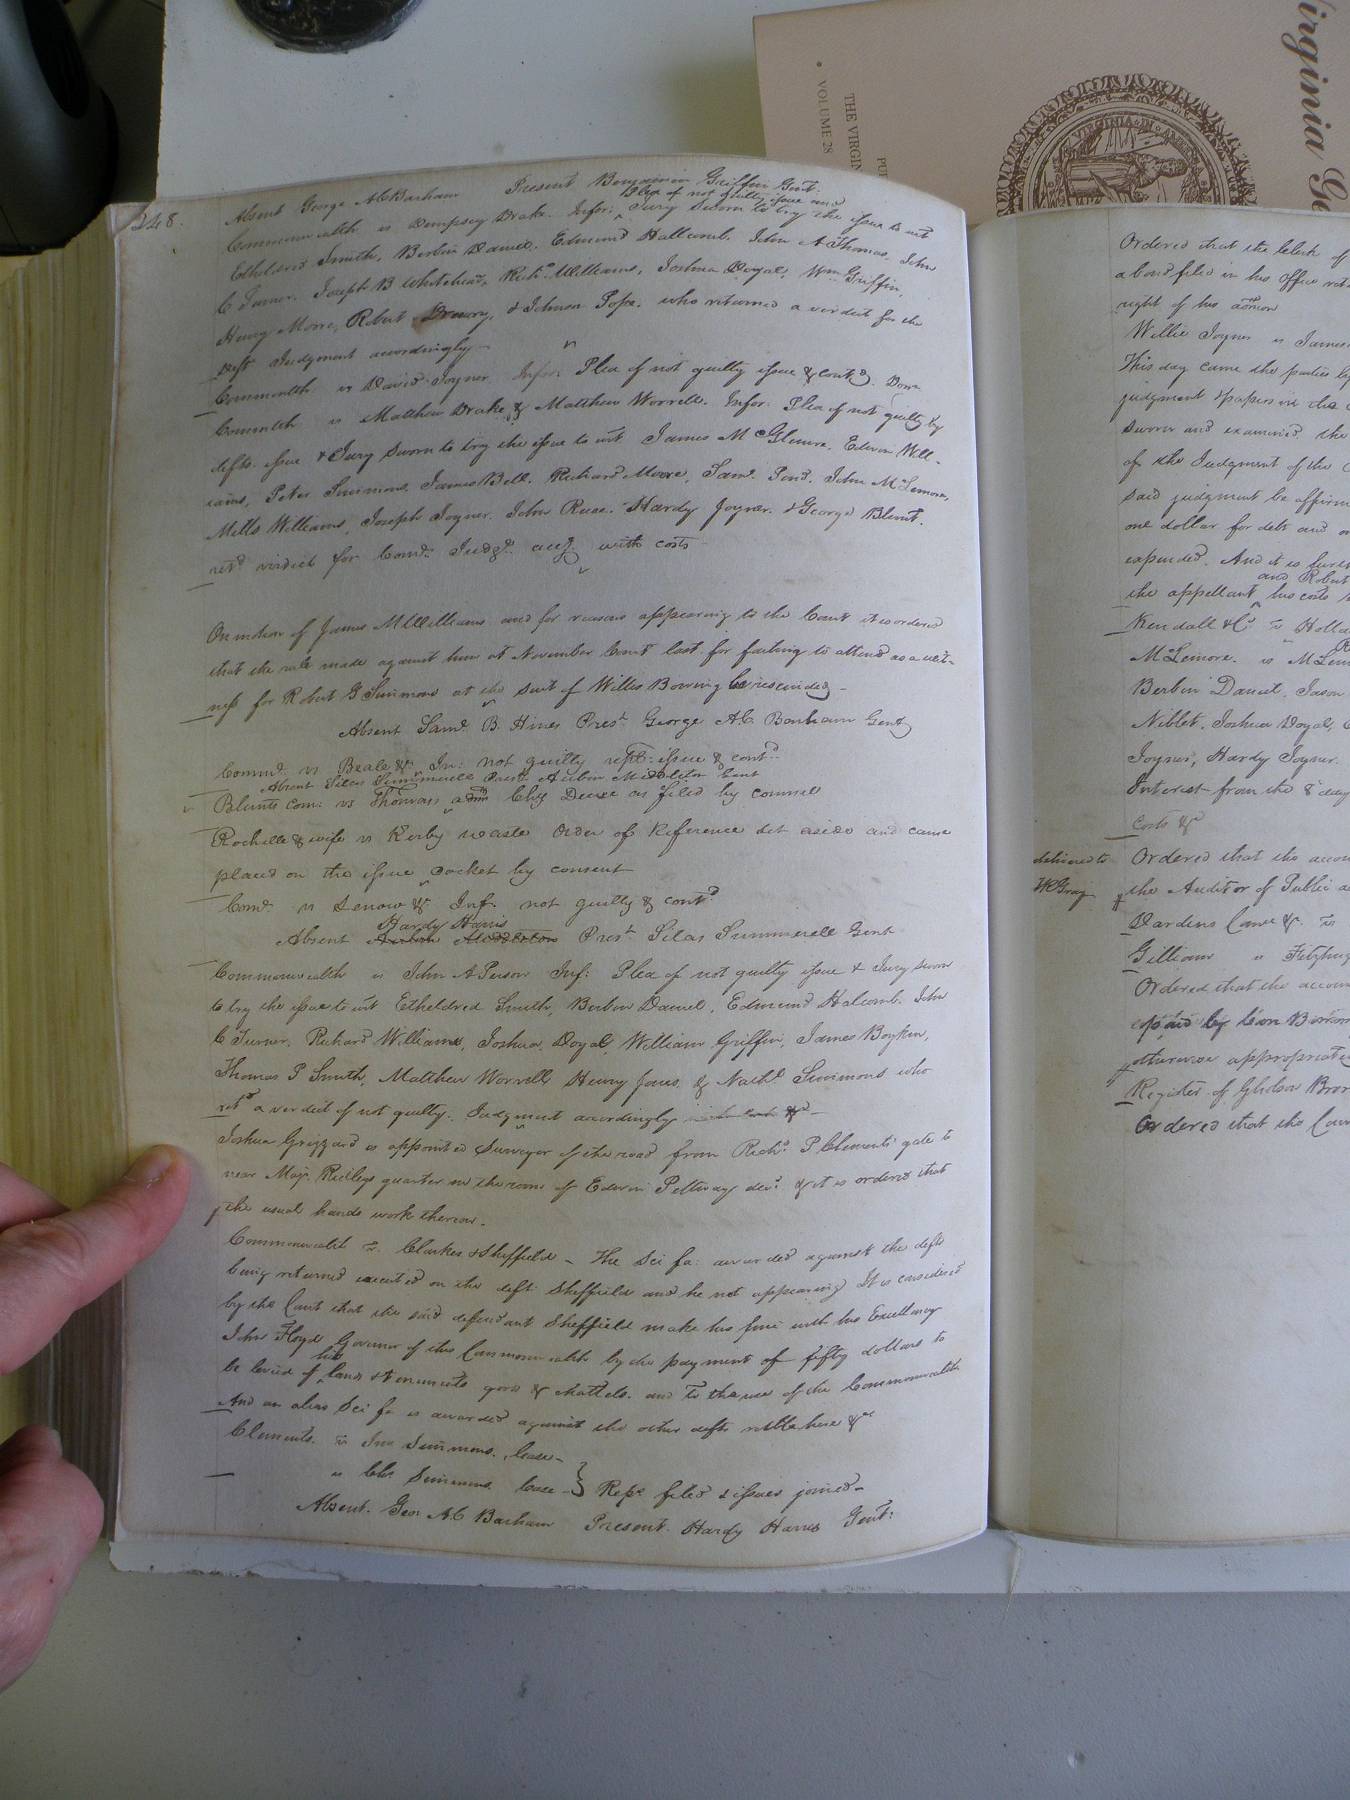 248.
Absent George A C Barham Present Benjamin Griffin Gent:
Plea of not guilty issue and
Commonwealth vs Dempsey Drake. Infor: Jury sworn to try the issue to wit
Etheldred Smith, Berbin Daniel, Edmund Hallcomb, John A Thomas, John
C Turner, Joseph B Whitehead, Richd Williams, Joshua Doyal, Wm Griffin,
Henry Moore, Robert Drewry, & Johnson Pope. who returned a verdict for the
Deft Judgment accordingly
Commonlth vs David Joyner. Infor: Plea of not guilty issue & contd.
Commlth vs Matthew Drake & Matthew Worrell. Infor: Plea of not guilty by
defts. issue & Jury sworn to try the issue to wit. James McLemore, Edwin Will-
iams, Peter Simmons, James Bell, Richard Moore, Saml. Pond, John McLemore,
Mills Williams, Joseph Joyner, John Rose, Hardy Joyner, & George Blunt.
retd verdict for Comth. Judgt. accg with costs
On motion of James M Williams and for reasons appearing to the Court it is ordered
that the rule made against him at November Court last for failing to attend as a wit-
ness for Robert G Simmons at the suit of Willis Bowing be rescinded
Absent Saml. B. Hines Prest George A.C. Barham Gent
Commth. vs Beale & In: not guilty issue & contd
Absent Silas Summerell Prest Middleton Gent
Blunts Com: vs Thomas admr Chy Decree as filed by counsel
Rochelle & wife vs Kerby waste Order of Reference set aside and cause
placed on the issue docket by consent
Comth. vs Lenow & Inf. not guilty & contd
Hardy Harris
Absent Middleton Prest Silas Summerell Gent
Commonwealth vs John A Person Inf: Plea of not guilty issue & Jury sworn
to try the issue to wit Etheldred Smith, Berbin Daniel, Edmund Halcomb. John
C Turner, Richard Williams, Joshua Doyal, William Griffin, James Boykin,
Thomas P Smith, Matthew Worrell Henry Jones & Nathl Simmons who
retd a verdict of not guilty. Judgment accordingly
Joshua Grizzard is appointed Surveyor of the road from Richd. P Clements gate to
near Majr. Ridleys quarter in the room of Edwin Pettway decd. & it is ordered that
the usual hands work thereon.
Commonwealth vs. Clarkes & Sheffield - The Sci fa: awarded against the defts
being returned executed on the deft Sheffield and he not appearing It is considered
by the Court that the said defendant Sheffield make his fine with his Excellency
John Floyd Governor of this Commonwealth by the payment of fifty dollars to
his
be levied of lands & tenements goods & chattels. and to the use of the Commonwealth
And an alias Sci fa is awarded against the other defts retble here &c
Clements vs Jno Simmons. Case
vs Chs Simmons Case } Reps filed & issues joined
Absent. Geo: A.C Barham Present. Hardy Harris Gent:
Ordered that the Clerk of
a bond filed in his office
right of his admon
Willie Joyner vs James
This day came the parties by
judgment & papers in the
sworn and examined. the
of the Judgment of the
said judgment be affirm
one dollar for debt and
expended. And it is
and Robert
the appellant his costs
Kendall & Co vs
McLemore. vs McLem
Berbin Daniel, Jason
Niblet, Joshua Doyal,
Joyner, Hardy Joyner.
Interest from the 8 day
Costs &c
delivered to
WGray
Ordered that the accou
the Auditor of Public
Dardens Came & vs
Gilliam vs Fitzhug
Ordered that the accoun
otherwise appropriated
Register of
Ordered that the
Virginia Ge
THE VIRGIN
VOLUME 28
VIRGINIA